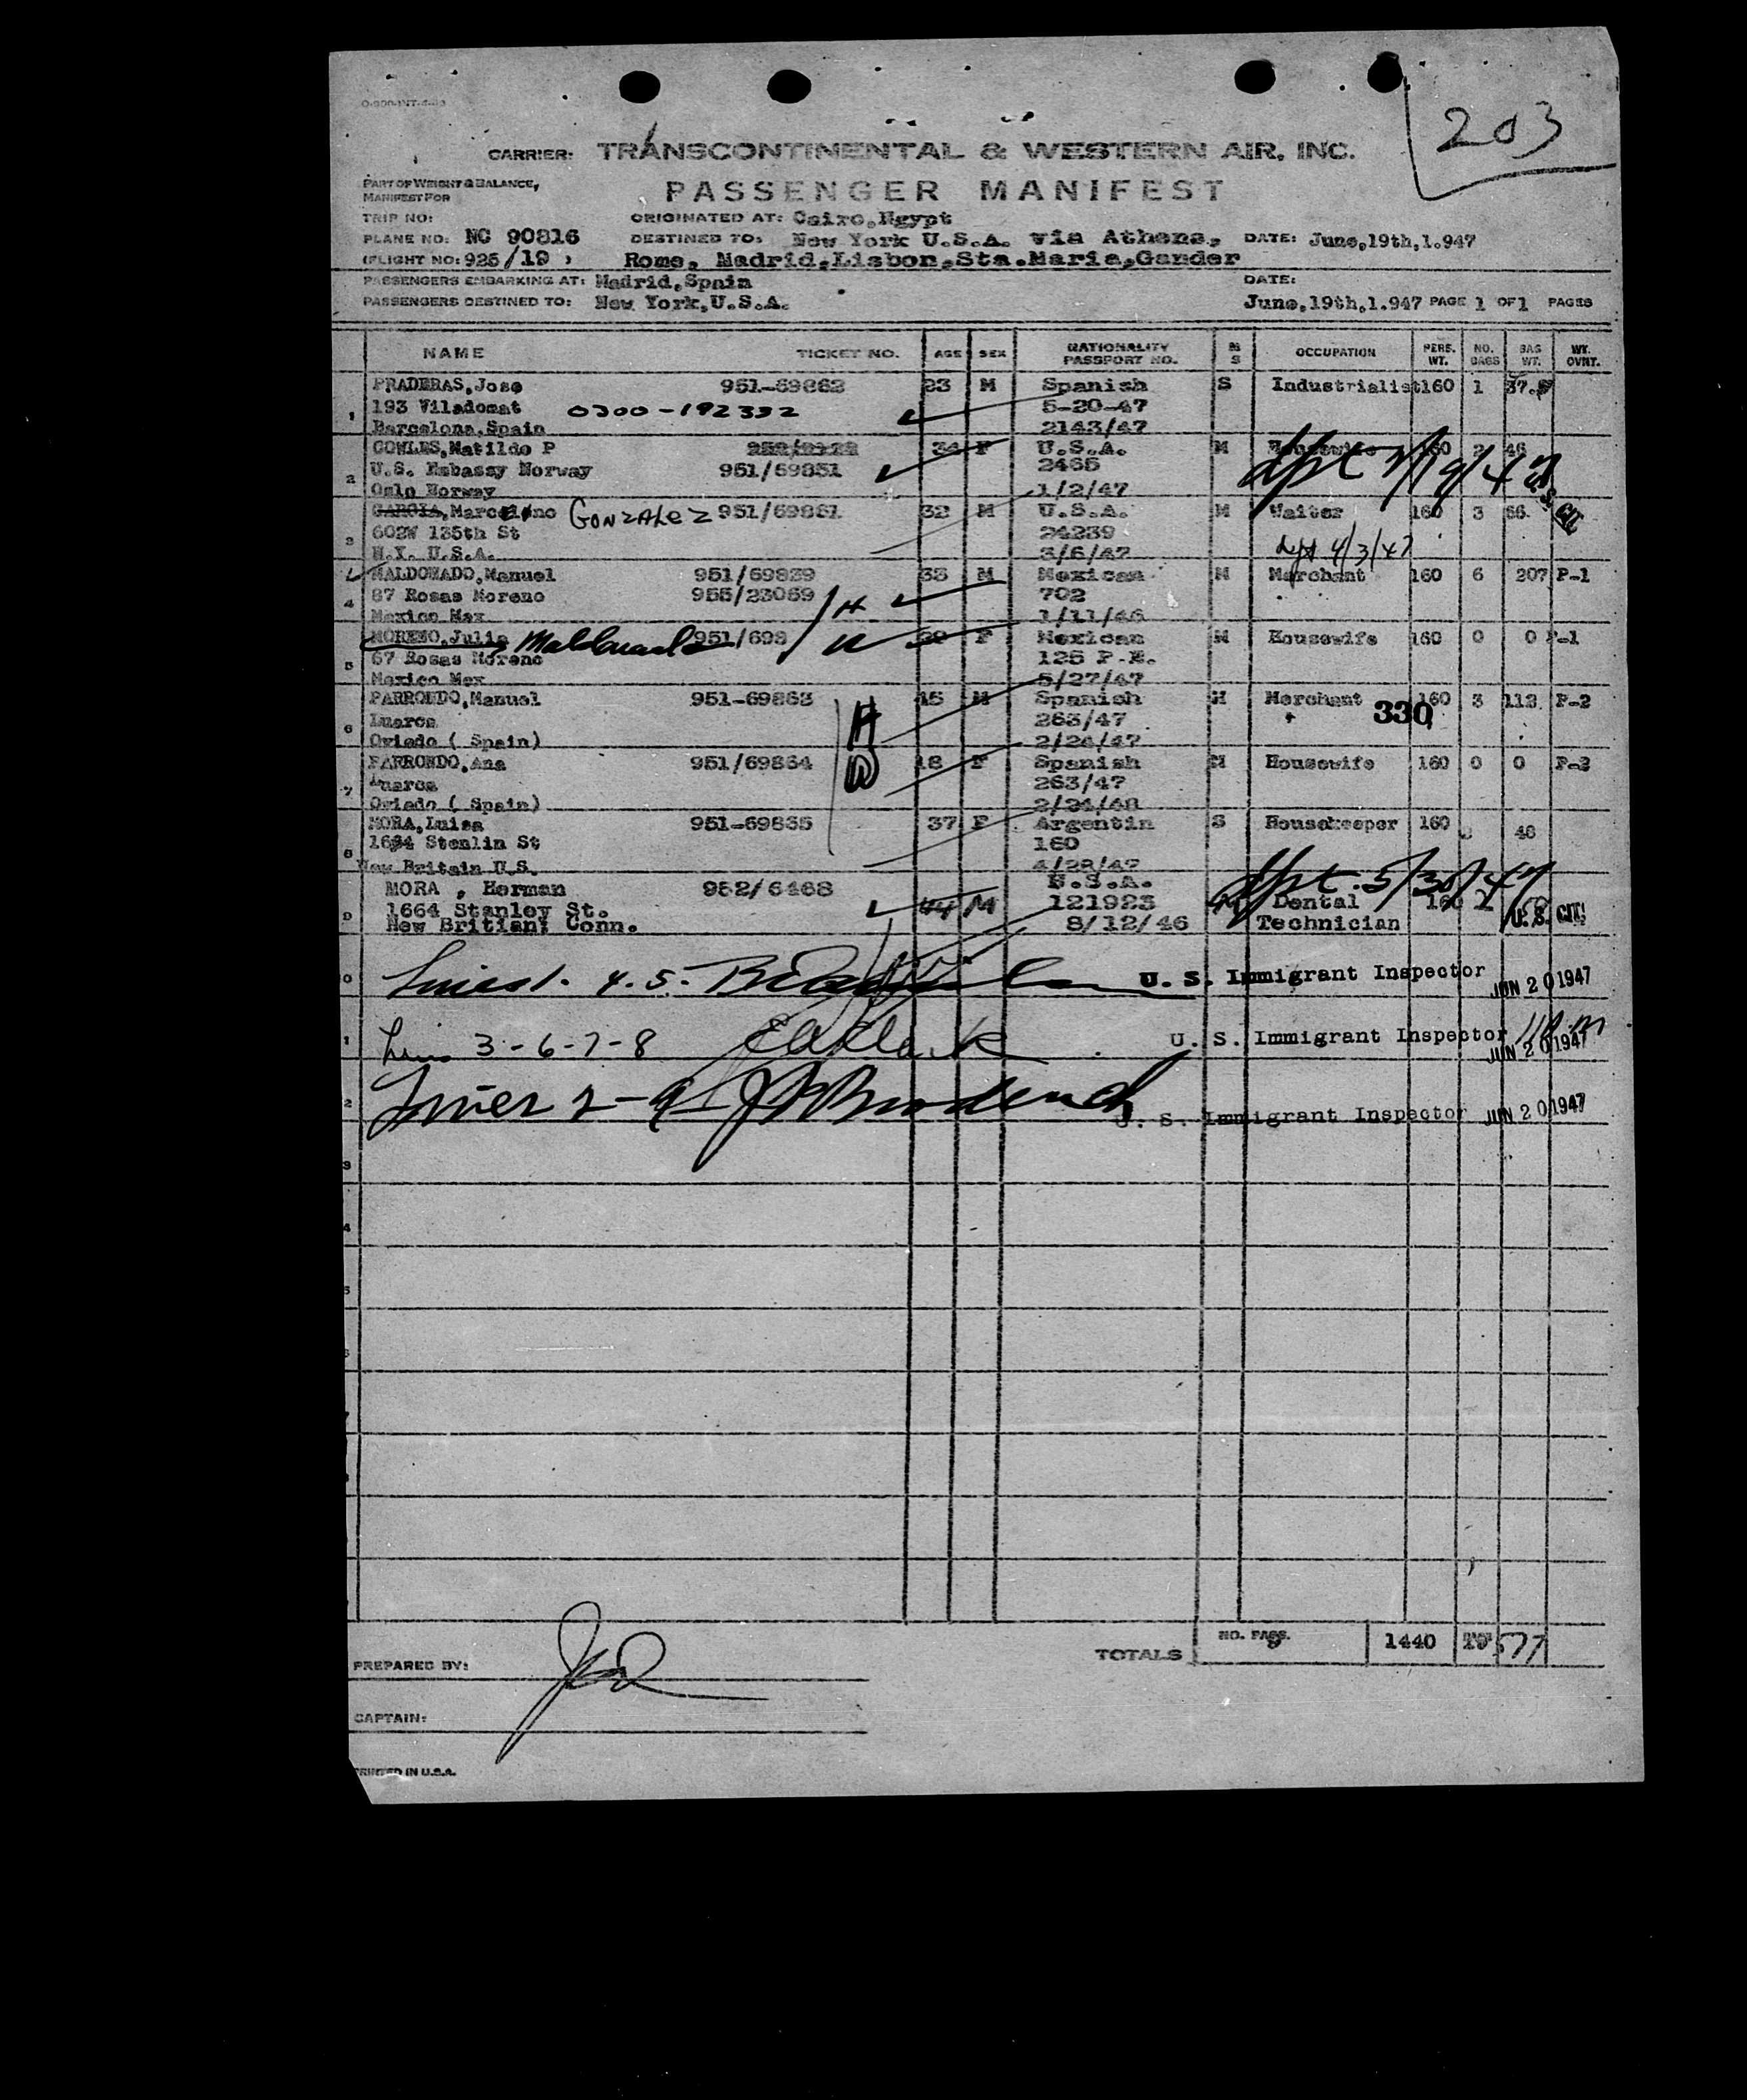 O-800-INT-
203
CARRIER: TRANSCONTINENTAL & WESTERN AIR, INC.
PART OF WEIGHT & BALANCE,
MANIFEST FOR
PASSENGER MANIFEST
TRIP NO: ORIGINATED AT: Cairo,Egypt
PLANE NO: NC 90816 DESTINED TO: New York U.S.A. via Athens, DATE: June,19th,1.947
(FLIGHT NO: 925/19 ) Rome, Madrid,Lisbon,Sta.Maria,Gander
PASSENGERS EMBARKING AT: Madrid,Spain DATE:
PASSENGERS DESTINED TO: New York,U.S.A. June,19th,1.947 PAGE 1 OF 1 PAGES
NAME TICKET NO. AGE SEX NATIONALITY PASSPORT NO. M S OCCUPATION PERS. WT. NO. BAGS BAG WT. WT. CVNT.
PRADERAS,Jose 951-69862 23 M Spanish S Industrialist 160 1 37.
1 193 Viladomat 0300-192332 5-20-47
Barcelona,Spain 2143/47
COWLES,Matilde P 34 F U.S.A. M Housewife 160 2 46
2 U.S. Embassy Norway 951/69851 2465 dpt 7/19/47
Oslo Norway 1/2/47 U.S. CIT.
GARCIA,Marcelino GONZALEZ 951/69861 32 M U.S.A. M Waiter 160 3 66
3 602W 135th St 24239
N.Y. U.S.A. 3/6/47 dpt 4/3/47
MALDONADO,Manuel 951/69839 33 M Mexican M Merchant 160 6 207 P-1
4 67 Rosas Moreno 955/23069 H 702
Mexico Mex 1/11/46
MORENO,Julia Maldonado 951/698 W F Mexican M Housewife 160 0 0 P-1
5 67 Rosas Moreno 125 P.E.
Mexico Mex 5/27/47
PARRONDO,Manuel 951-69863 45 M Spanish M Merchant 160 3 112 P-2
6 Luarca H 263/47 330
Oviedo ( Spain) 2/24/47
PARRONDO,Ana 951/69864 18 F Spanish M Housewife 160 0 0 P-2
7 Luarca W 263/47
Oviedo ( Spain) 2/24/48
MORA,Luisa 951-69835 37 F Argentin S Housekeeper 160 46
8 1694 Stenlin St 160
New Britain U.S. 4/28/47
MORA , Herman 952/6468 U.S.A. dpt. 5/30/47
9 1664 Stanley St. 44 M 121923 Dental 160 2
New Britian, Conn. 8/12/46 Technician U.S. CIT.
Lines 1. 4. 5. U. S. Immigrant Inspector JUN 20 1947
Lines 3-6-7-8 U. S. Immigrant Inspector JUN 20 1947
Lines 2-9 U. S. Immigrant Inspector JUN 20 1947
TOTALS NO. PASS. 9 1440 577
PREPARED BY:
CAPTAIN:
PRINTED IN U.S.A.